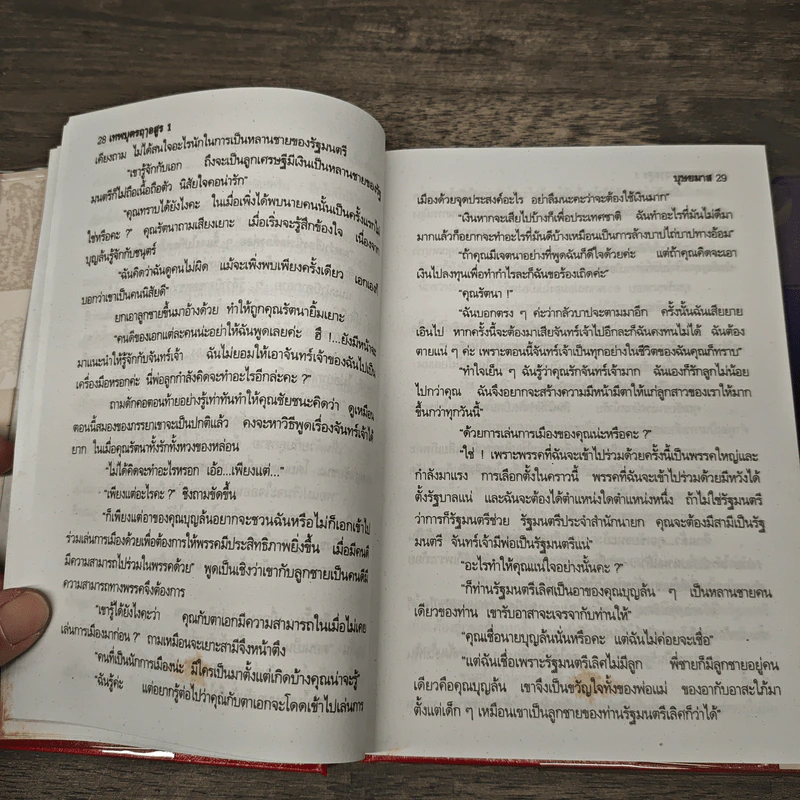 28 เทพบุตรฤาอสูร 1
เคียงถาม ไม่ได้สนใจอะไรนักในการเป็นหลานชายของรัฐมนตรี
"เขารู้จักกับเอก ถึงจะเป็นลูกเศรษฐีมีเงินเป็นหลานชายของรัฐ
มนตรีก็ไม่ถือเนื้อถือตัว นิสัยใจคอน่ารัก"
"คุณทราบได้ยังไงคะ ในเมื่อเพิ่งได้พบนายคนนั้นเป็นครั้งแรกไม่
ใช่หรือคะ ?" คุณรัตนาถามเสียงเยาะ เมื่อเริ่มจะรู้สึกข้องใจ เนื่องจาก
บุญล้นรู้จักกับชนูตร์
"ฉันคิดว่าฉันดูคนไม่ผิด แม้จะเพิ่งพบเพียงครั้งเดียว เอกเองก็
บอกว่าเขาเป็นคนนิสัยดี"
ยกเอาลูกชายขึ้นมาอ้างด้วย ทำให้ถูกคุณรัตนายิ้มเยาะ
"คนดีของเอกแต่ละคนน่ะอย่าให้ฉันพูดเลยค่ะ ฮึ !...ยังมีหน้าจะ
มาแนะนำให้รู้จักกับจันทร์เจ้า ฉันไม่ยอมให้เอาจันทร์เจ้าของฉันไปเป็น
เครื่องมือหรอกค่ะ นี่พ่อลูกกำลังคิดจะทำอะไรอีกล่ะคะ ?"
ถามดักคอตอนท้ายอย่างรู้เท่าทันทำให้คุณชัยชนะคิดว่า ดูเหมือน
ตอนนี้สมองของภรรยาเขาจะเป็นปกติแล้ว คงจะหาวิธีพูดเรื่องจันทร์เจ้าได้
ยาก ในเมื่อคุณรัตนาทั้งรักทั้งหวงของหล่อน
"ไม่ได้คิดจะทำอะไรหรอก เอ้อ...เพียงแต่..."
"เพียงแต่อะไรคะ ?" ซึ่งถามขัดขึ้น
"ก็เพียงแต่อาของคุณบุญล้นอยากจะชวนฉันหรือไม่ก็เอกเข้าไป
ร่วมเล่นการเมืองด้วยเพื่อต้องการให้พรรคมีประสิทธิภาพยิ่งขึ้น เมื่อมีคนดี
มีความสามารถไปร่วมในพรรคด้วย" พูดเป็นเชิงว่าเขากับลูกชายเป็นคนดีมี
ความสามารถทางพรรคจึงต้องการ
"เขารู้ได้ยังไงคะว่า คุณกับตาเอกมีความสามารถในเมื่อไม่เคย
เล่นการเมืองมาก่อน ?" ถามเหมือนจะเยาะสามีจึงหน้าตึง
"คนที่เป็นนักการเมืองน่ะ มีใครเป็นมาตั้งแต่เกิดบ้างคุณน่าจะรู้"
"ฉันรู้ค่ะ แต่อยากรู้ต่อไปว่าคุณกับตาเอกจะโดดเข้าไปเล่นการ
บุษยมาส 29
เมืองด้วยจุดประสงค์อะไร อย่าลืมนะคะว่าจะต้องใช้เงินมาก"
"เงินหากจะเสียไปบ้างก็เพื่อประเทศชาติ ฉันทำอะไรที่มันไม่ดีมา
มากแล้วก็อยากจะทำอะไรที่มันดีบ้างเหมือนเป็นการล้างบาปไถ่บาปทางอ้อม"
"ถ้าคุณมีเจตนาอย่างที่พูดฉันก็ดีใจด้วยค่ะ แต่ถ้าคุณคิดจะเอา
เงินไปลงทุนเพื่อทำกำไรละก็ฉันขอร้องเถิดค่ะ"
"คุณรัตนา !"
"ฉันบอกตรง ๆ ค่ะว่ากลัวบาปจะตามมาอีก ครั้งนั้นฉันเสียยาย
เอินไป หากครั้งนี้จะต้องมาเสียจันทร์เจ้าไปอีกละก็ฉันคงทนไม่ได้ ฉันต้อง
ตายแน่ ๆ ค่ะ เพราะตอนนี้จันทร์เจ้าเป็นทุกอย่างในชีวิตของฉันคุณก็ทราบ"
"ทำใจเย็น ๆ ฉันรู้ว่าคุณรักจันทร์เจ้ามาก ฉันเองก็รักลูกไม่น้อย
ไปกว่าคุณ ฉันจึงอยากจะสร้างความมีหน้ามีตาให้แก่ลูกสาวของเราให้มาก
ขึ้นกว่าทุกวันนี้"
"ด้วยการเล่นการเมืองของคุณน่ะหรือคะ ?"
"ใช่ ! เพราะพรรคที่ฉันจะเข้าไปร่วมด้วยครั้งนี้เป็นพรรคใหญ่และ
กำลังมาแรง การเลือกตั้งในคราวนี้ พรรคที่ฉันจะเข้าไปร่วมด้วยมีหวังได้
ตั้งรัฐบาลแน่ และฉันจะต้องได้ตำแหน่งใดตำแหน่งหนึ่ง ถ้าไม่ใช่รัฐมนตรี
ว่าการก็รัฐมนตรีช่วย รัฐมนตรีประจำสำนักนายก คุณจะต้องมีสามีเป็นรัฐ
มนตรี จันทร์เจ้ามีพ่อเป็นรัฐมนตรีแน่"
"อะไรทำให้คุณแน่ใจอย่างนั้นคะ ?"
"ก็ท่านรัฐมนตรีเลิศเป็นอาของคุณบุญล้น ๆ เป็นหลานชายคน
เดียวของท่าน เขารับอาสาจะเจรจากับท่านให้"
"คุณเชื่อนายบุญล้นนั่นหรือคะ แต่ฉันไม่ค่อยจะเชื่อ"
"แต่ฉันเชื่อเพราะรัฐมนตรีเลิศไม่มีลูก พี่ชายก็มีลูกชายอยู่คน
เดียวคือคุณบุญล้น เขาจึงเป็นขวัญใจทั้งของพ่อแม่ ของอากับอาสะใภ้มา
ตั้งแต่เด็ก ๆ เหมือนเขาเป็นลูกชายของท่านรัฐมนตรีเลิศก็ว่าได้"